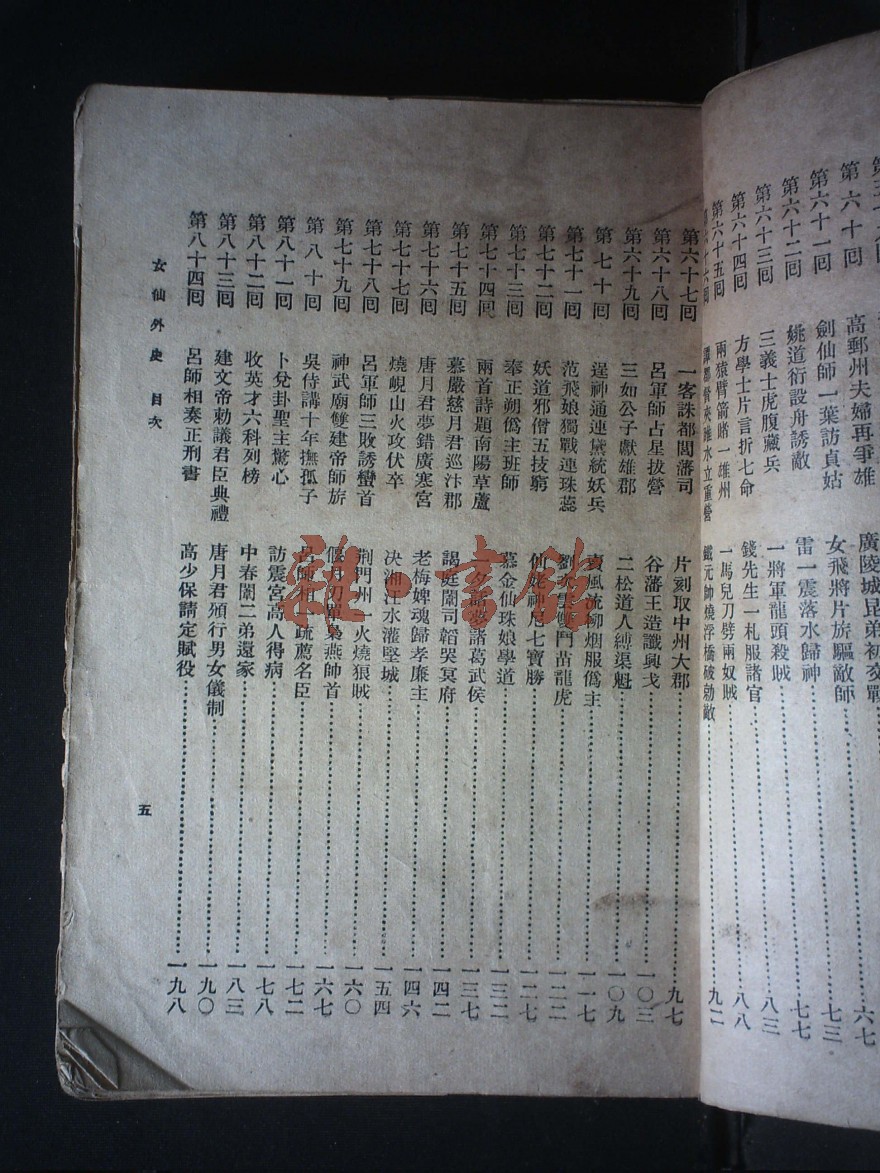 第六十回 高郵州夫婦再爭雄 廣陵城昆弟初交戰 六七
第六十一回 劍仙師一葉訪貞姑 女飛將片旂驅敵師 七三
第六十二回 姚道衍設舟誘敵 雷一震落水歸神 七七
第六十三回 三義士虎腹藏兵 一將軍龍頭殺賊 八三
第六十四回 方學士片言折七命 錢先生一札服諸官 八八
第六十五回 兩猿臂箭賭一雄州 一馬兒刀劈兩奴賊 九二
第六十六回 水立重營 鐵元帥燒浮橋破勍敵
第六十七回 一客誅都閫藩司 片刻取中州大郡 九七
第六十八回 呂軍師占星拔營 谷藩王造讖興戈 一〇三
第六十九回 三如公子獻雄郡 二松道人縛渠魁 一〇九
第七十回 逞神通連黛統妖兵 賣風流柳烟服僞主 一一七
第七十一回 范飛娘獨戰連珠蕊 劉次雲雙鬥苗龍虎 一二二
第七十二回 妖道邪僧五技窮 仙姥神尼七寶勝 一二七
第七十三回 奉正朔僞主班師 慕金仙珠娘學道 一三二
第七十四回 兩首詩題南陽草蘆 一夕話夢諸葛武侯 一三七
第七十五回 慕嚴慈月君巡汴郡 謁庭闈司韜哭冥府 一四二
第七十六回 唐月君夢錯廣寒宮 老梅婢魂歸孝廉主 一四六
第七十七回 燒峴山火攻伏卒 決湘江水灌堅城 一五四
第七十八回 呂軍師三敗誘蠻首 荆門州一火燒狼賊 一六〇
第七十九回 神武廟雙建帝師旂 偃月刀單梟燕帥首 一六七
第八十回 吳侍講十年撫孤子 呂師相一疏薦名臣 一七二
第八十一回 卜兌卦聖主驚心 訪震宮高人得病 一七八
第八十二回 收英才六科列榜 中春闈二弟還家 一八三
第八十三回 建文帝勅議君臣典禮 唐月君頒行男女儀制 一九〇
第八十四回 呂師相奏正刑書 高少保請定賦役 一九八
女仙外史 目次
五
雜·書館